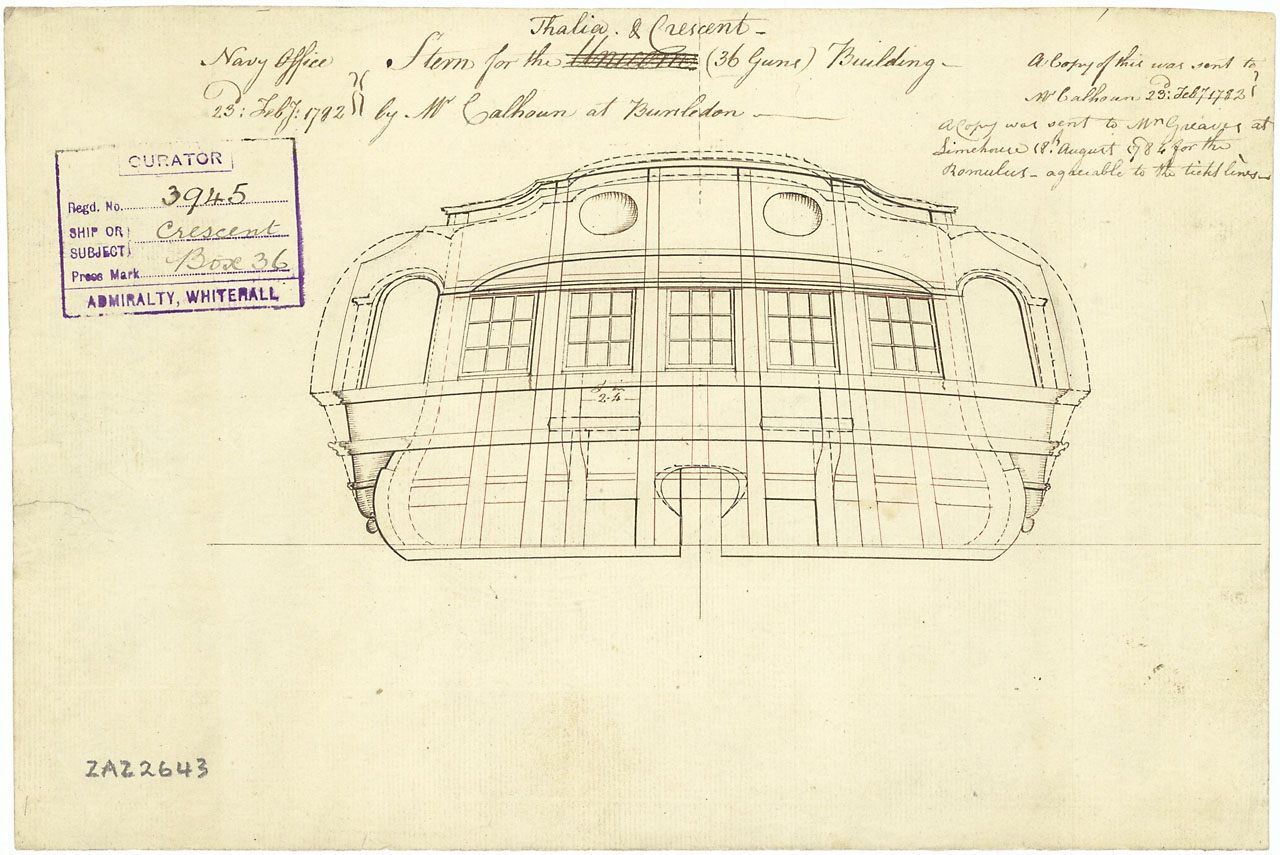 Thalia. & Crescent -
Navy Office
23d: Feby: 1782
Stern for the Unicorn (36 Guns) Building -
by Mr Calhoun at Bursledon
A Copy of this was sent to
Mr Calhoun 23d: Feby 1782
A Copy was sent to Mr Greaves at
Limehouse 18th August 1784 for the
Romulus - agreeable to the tickt lines -
CURATOR
Regd. No. 3945
SHIP OR SUBJECT} Crescent
Press Mark Box 36
ADMIRALTY, WHITEHALL
2.4
ZAZ2643